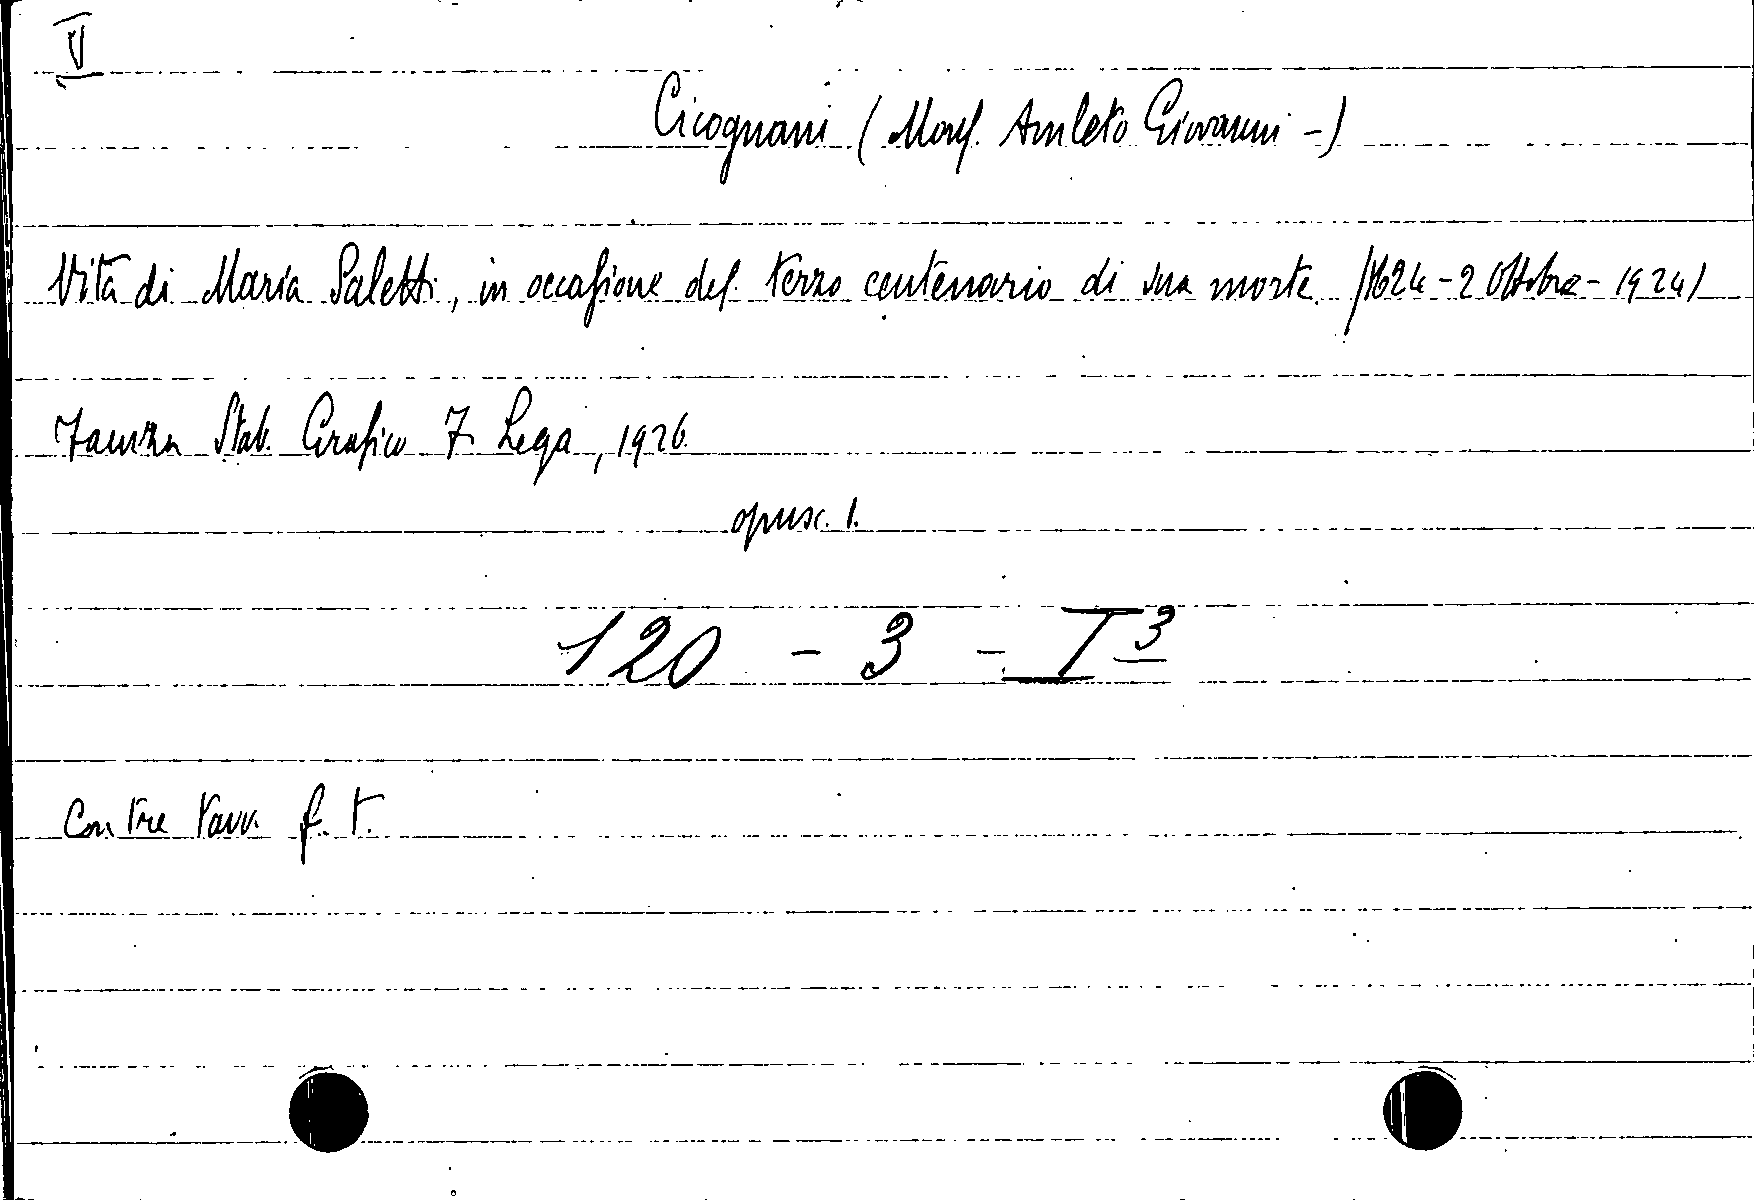 V
Cicognani (Mons. Amleto Giovanni -)
Vita di Maria Saletti, in occasione del terzo centenario di sua morte (1624 - 2 Ottobre - 1924)
Faenza Stab. Grafico F. Lega, 1926
opusc. 1.
120 - 3 - I³
Con tre tavv. f. t.